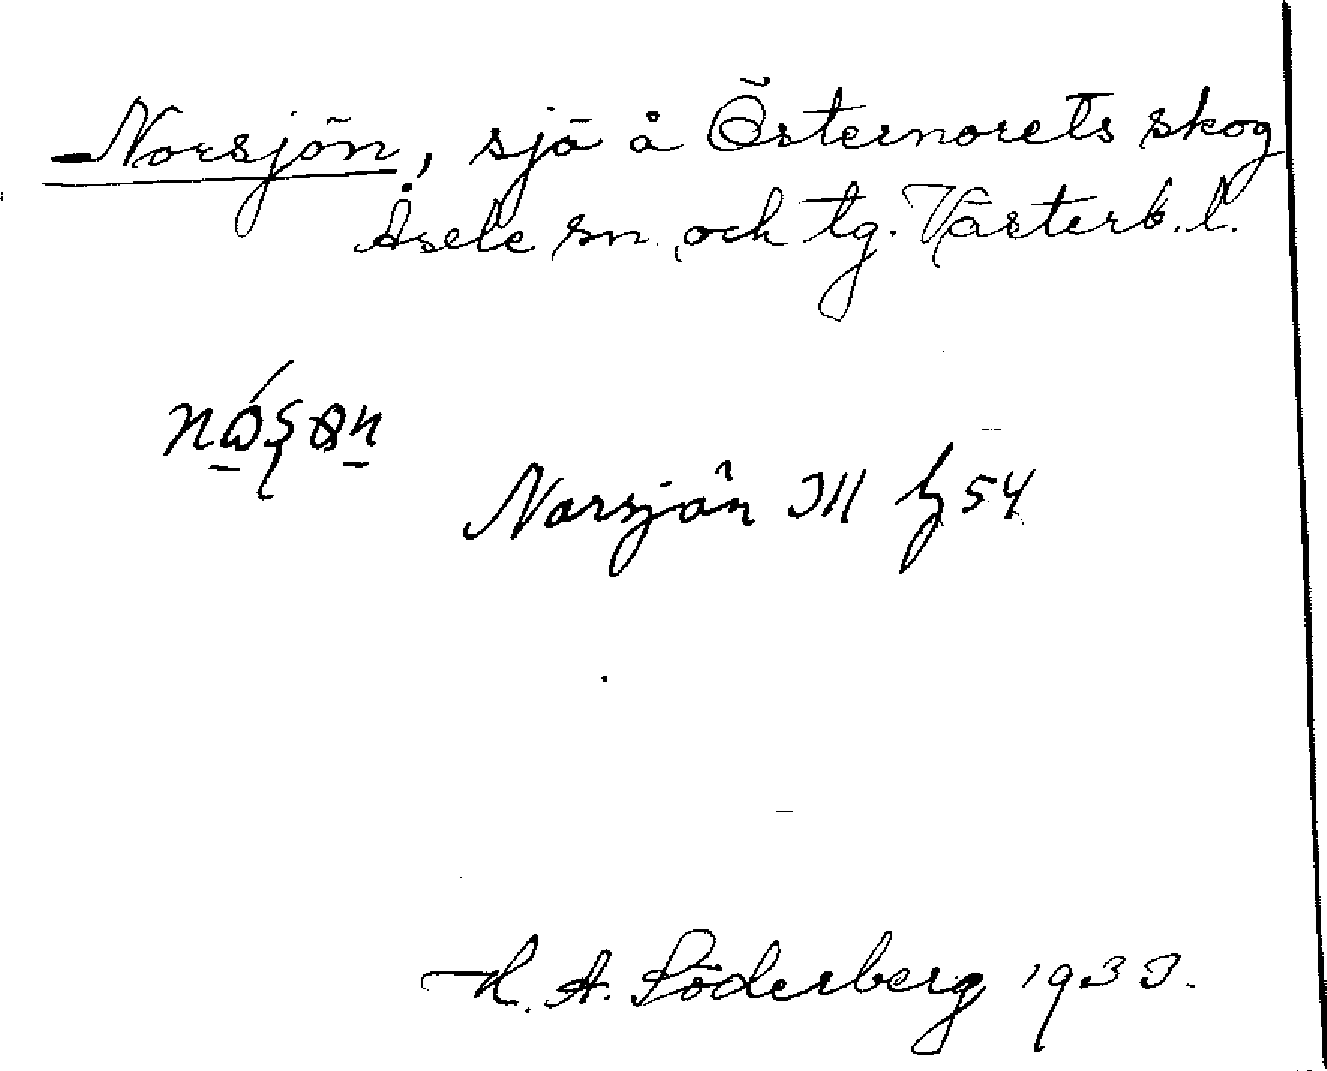 Norsjön, sjö å Östernorets skog
Åsele sn och tg. Västerb. l.
Norsjön JII 54
H. A. Söderberg 1933.